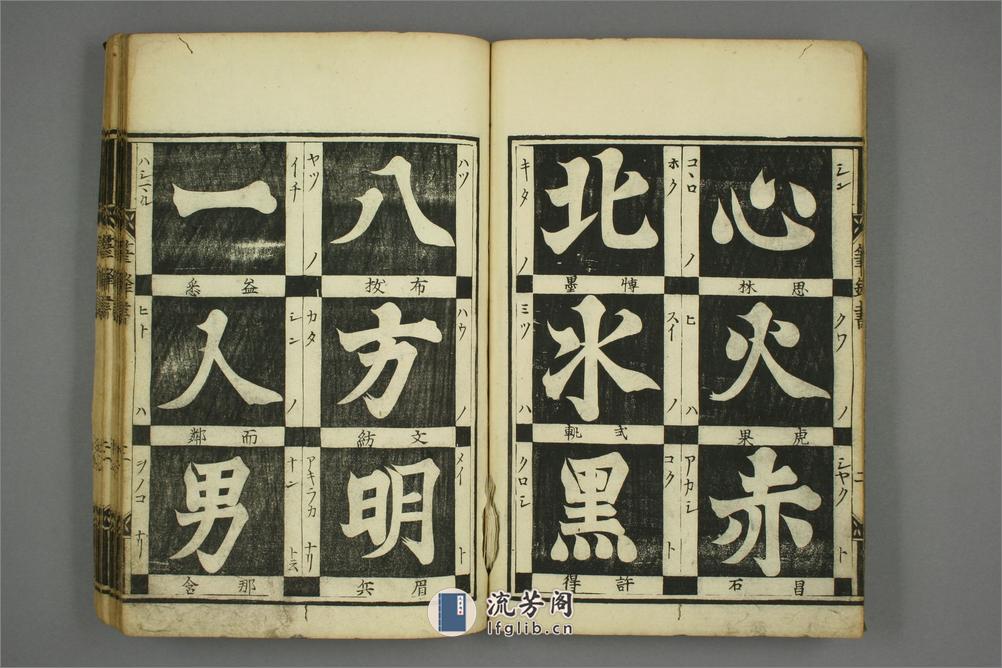 シン
心
コヽロ ノ
思林
クワ ノ
火
ヒ ハ
虎果
シヤク ト
赤
アカシ
昌石
ホク
北
キタ ノ
博墨
スイ ノ
水
ミツ ハ
コク ト
黒
クロシ
許得
ハツ
八
ヤツ ノ
布抜
ハウ ノ
方
カタ
文紡
メイ ト
明
アキラカ ナリ
眉兵
イチ
一
ハシマル
益悉
シン ノ
人
ヒト ハ
而鄰
ナン ト云
男
ヲノコ ナリ
那含
流芳阁
lfglib.cn